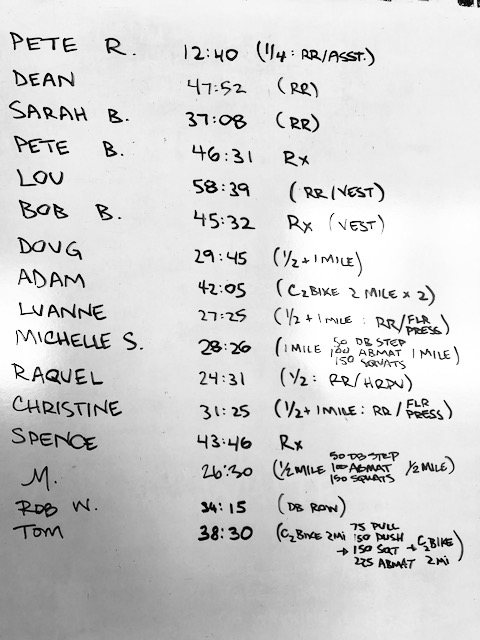 PETE R. 12:40 (1/4: RR/ASST.)
DEAN 47:52 (RR)
SARAH B. 37:08 (RR)
PETE B. 46:31 Rx
LOU 58:39 (RR/VEST)
BOB B. 45:32 Rx (VEST)
DOUG 29:45 (1/2 + 1 MILE)
ADAM 42:05 (C2BIKE 2 MILE x 2)
LUANNE 27:25 (1/2 + 1 MILE: RR/FLR PRESS)
MICHELLE S. 28:26 (1 MILE 50 DB STEP 100 ABMAT 150 SQUATS 1 MILE)
RAQUEL 24:31 (1/2: RR/HRPU)
CHRISTINE 31:25 (1/2 + 1 MILE: RR/FLR PRESS)
SPENCE 43:46 Rx
M. 26:30 (1/2 MILE 50 DB STEP 100 ABMAT 150 SQUATS 1/2 MILE)
ROB W. 34:15 (DB ROW)
TOM 38:30 (C2BIKE 2Mi → 75 PULL 150 PUSH 150 SQT 225 ABMAT → C2BIKE 2Mi)